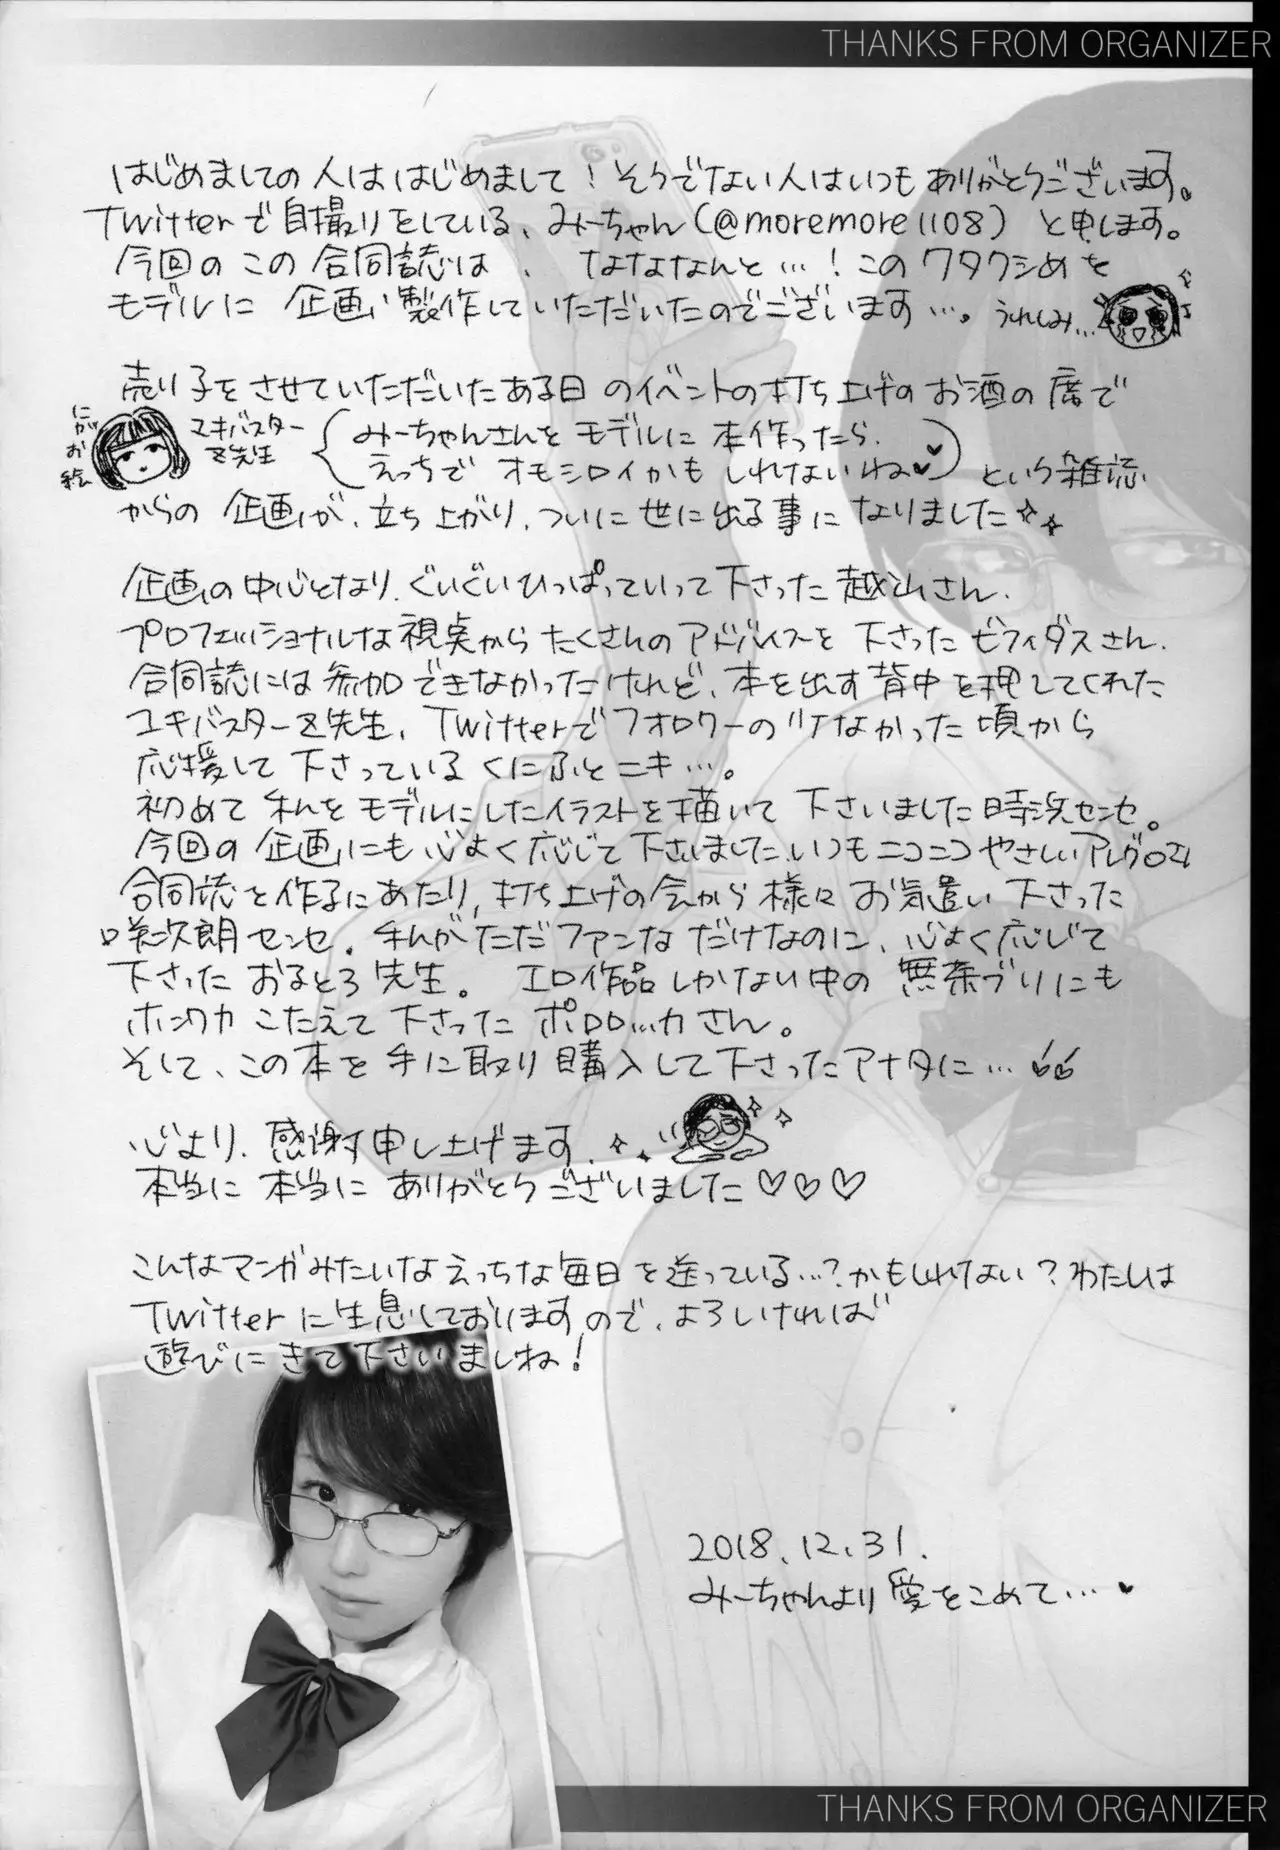 THANKS FROM ORGANIZER
はじめましての人ははじめまして！そうでない人はいつもありがとうございます。
Twitterで自撮りをしている、みーちゃん(@moremore1108)と申します。
今回のこの合同誌は、なななんと…！このワタクシめを
モデルに企画、製作していただいたのでございます…。うれしみ…
売り子をさせていただいたある日のイベントの打ち上げのお酒の席で
にがお絵
マキバスター
Z先生
みーちゃんさんをモデルに本作ったら、
えっちでオモシロイかもしれないね♥♥
という雑談
からの企画が、立ち上がり、ついに世に出る事になりました
企画の中心となり、ぐいぐいひっぱっていって下さった越山さん、
プロフェッショナルな視点からたくさんのアドバイスを下さったビフィダスさん、
合同誌には参加できなかったけれど、本を出す背中を押してくれた
ユキバスターZ先生、Twitterでフォロワーの少なかった頃から
応援して下さっているくにふとニキ…。
初めて私をモデルにしたイラストを描いて下さいました時浜センセ。
今回の企画にも心よく応じて下さいました、いつもニコニコやさしいアレグロさん
合同誌を作るにあたり、打ち上げの会から様々お気遣い下さった
咲次朗センセ。私がただファンなだけなのに、心よく応じて
下さったおるとろ先生。エロ作品しかない中の無茶ブリにも
ホンワカこたえて下さったポロロッカさん。
そして、この本を手に取り購入して下さったアナタに…
心より、感謝申し上げます。
本当に本当にありがとうございました♡♡♡
こんなマンガみたいなえっちな毎日を送っている…？かもしれない？わたしは
Twitterに生息しておりますので、よろしければ
遊びにきて下さいましね！
2018.12.31.
みーちゃんより愛をこめて…♥
THANKS FROM ORGANIZER